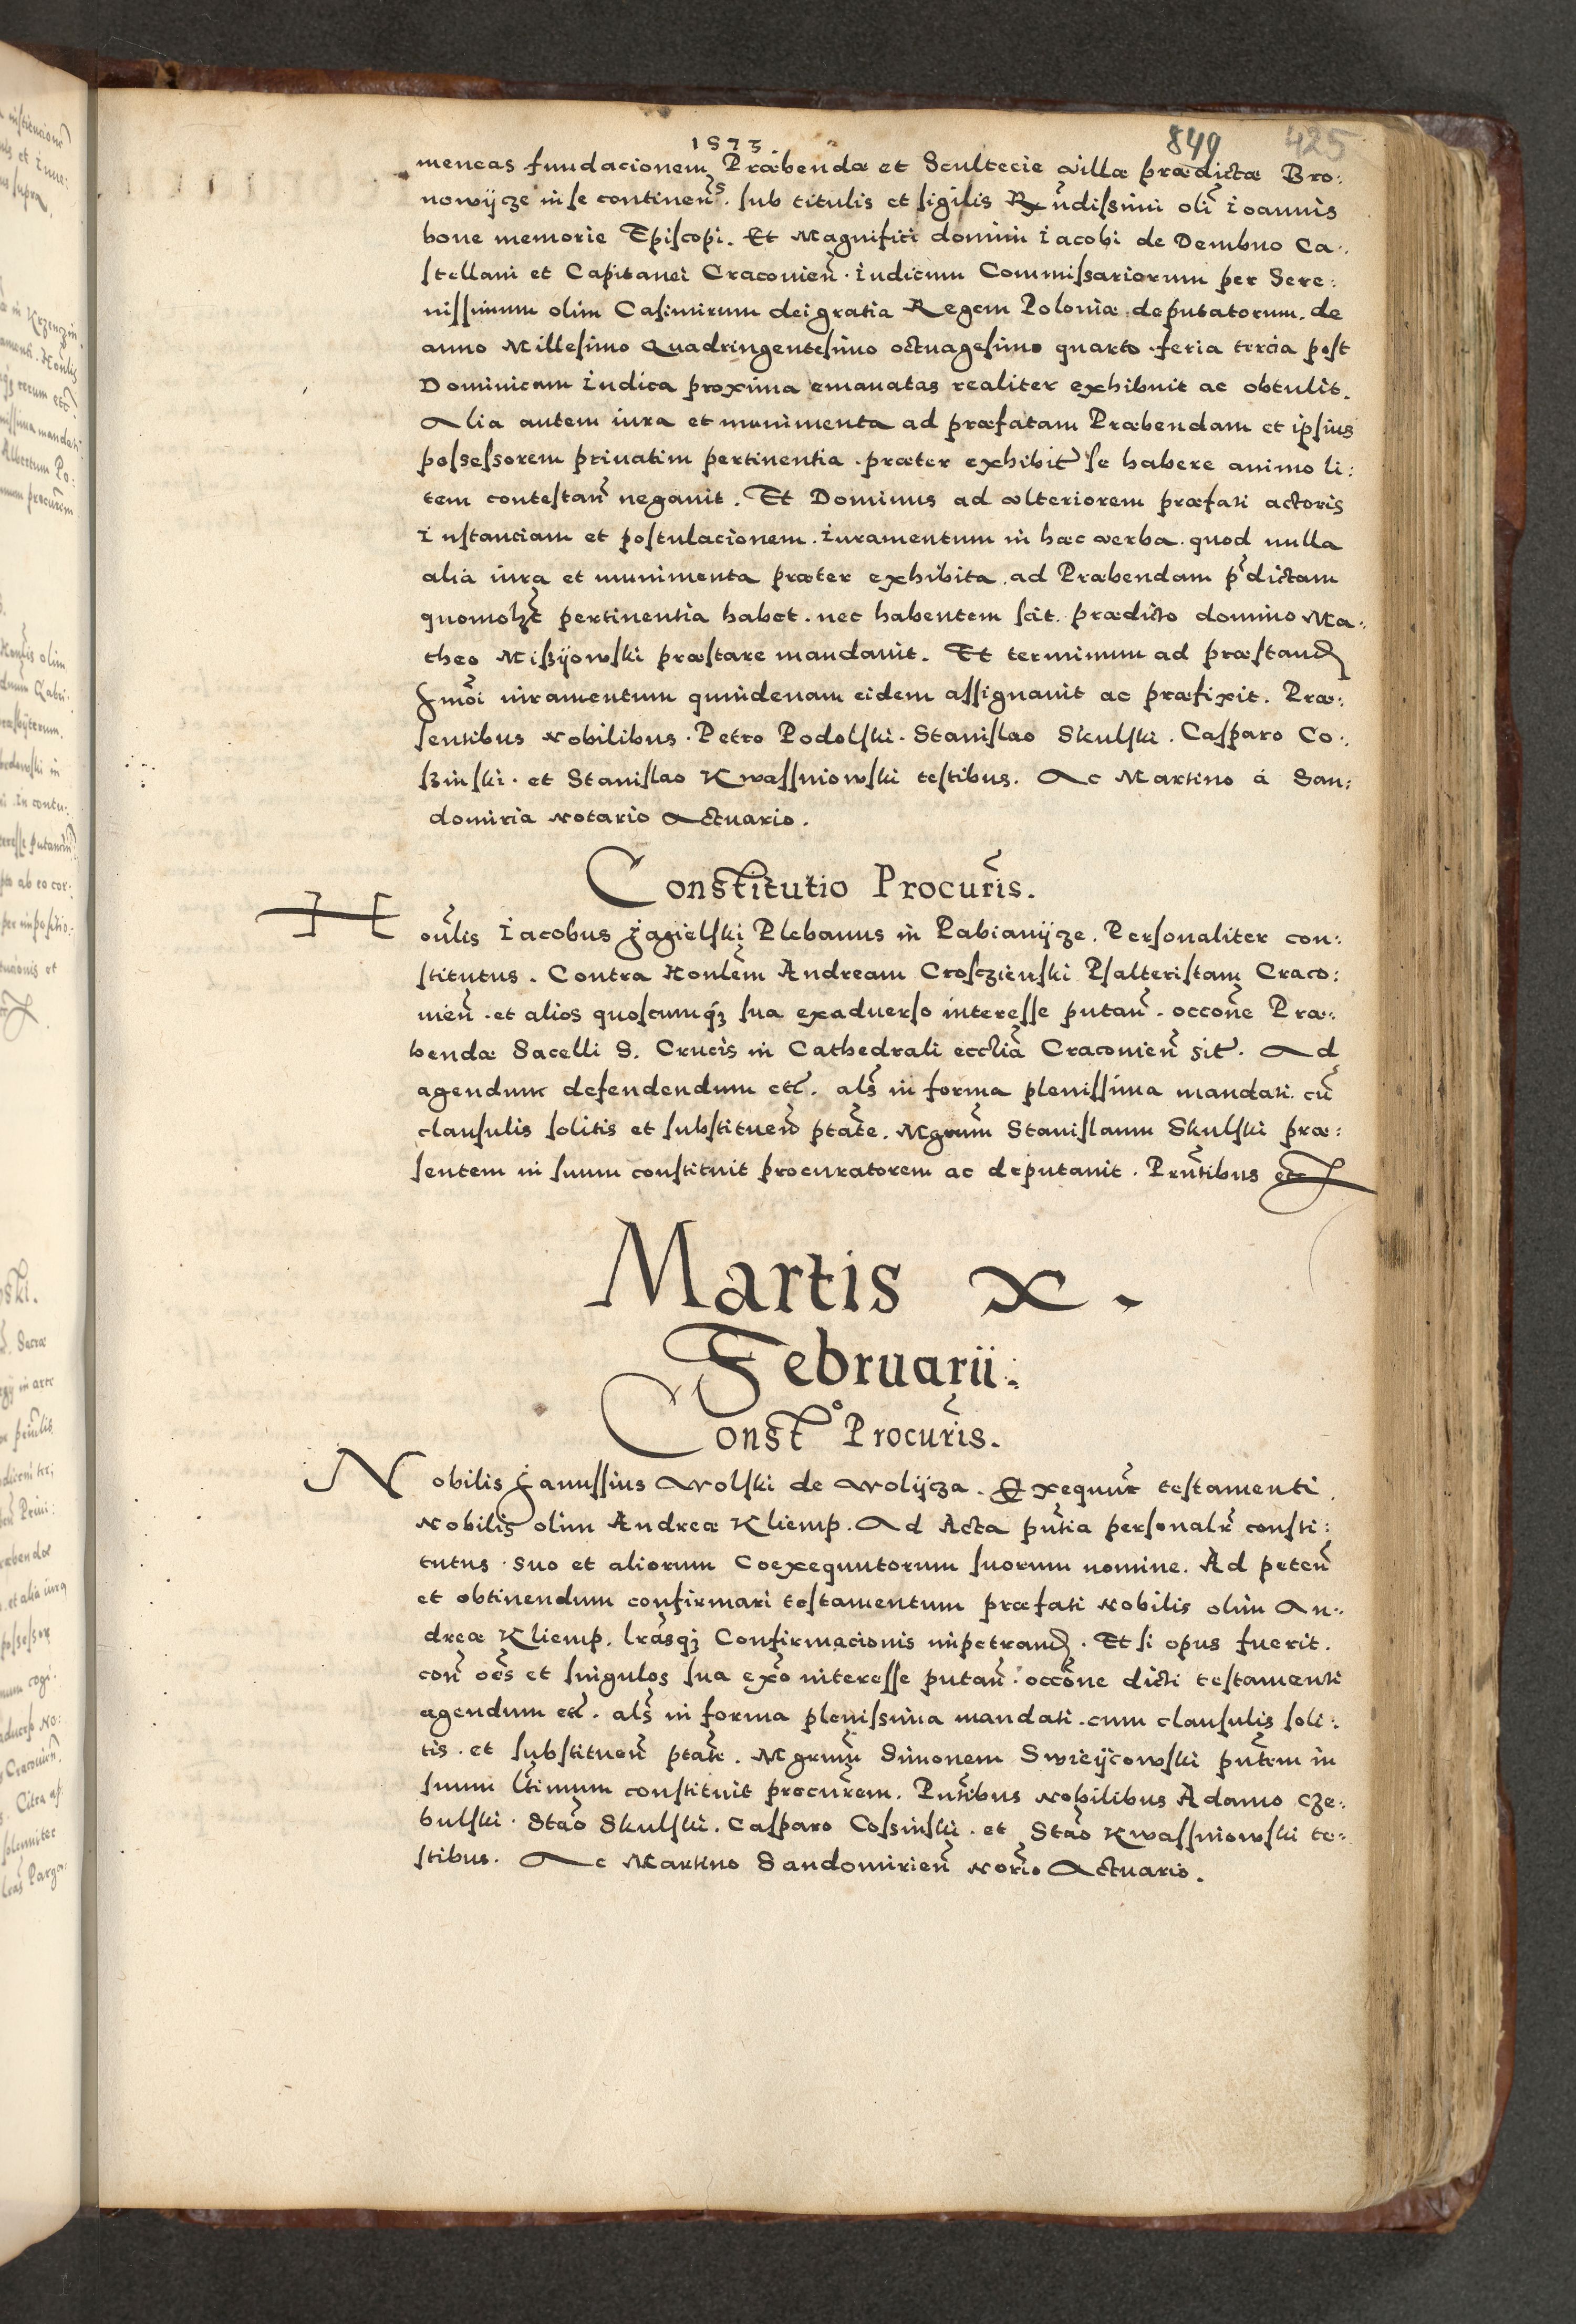 1573.
849 425
mencas fundacionem Præbendæ et Scultecie villæ prædictæ Bro:
nowÿcze in se continen̄s. sub titulis et sigilis Rx̄ndissimi olī Ioannis
bone memorie Episcopi. Et Magnifici domini Iacobi de Dembno Ca:
stellani et Capitanei Craconien̄. Iudicum Commissariorum per Sere:
nissimum olim Casimirum dei gratia Regem Poloniæ deputatorum. de
anno Millesimo Quadringentesimo octuagesimo quarto feria tercia post
Dominicam Iudica proxima emanatas realiter exhibuit ac obtulit.
Alia autem iura et munimenta ad præfatam Præbendam et ipsius
possessorem priuatim pertinentia præter exhibit̄ se habere animo li:
tem contestan̄ negauit. Et Dominus ad vlteriorem præfati actoris
Instanciam et postulacionem. Iuramentum in hæc verba. quod nulla
alia iura et munimenta præter exhibita. ad Præbendam p̄dictam
quomolȝt̄ pertinentia habet. nec habentem scit. prædicto domino Ma:
theo Mißÿowski præstare mandauit. Et terminum ad præstand̄
hmōi iuramentum quindenam eidem assignauit ac præfixit. Præ:
sentibus Nobilibus. Petro Podolski. Stanislao Skulski. Casparo Co:
szinski. et Stanislao Kwassniowski testibus. Ac Martino á San:
domiria Notario Actuario.
Constitutio Procur̄is.
Hon̄lis Iacobus Jagielski Plebanus in Pabianÿcze. Personaliter con:
stitutus. Contra Honlēm Andream Crosczienski Psalteristam Craco:
nien̄. et alios quoscumqȝ sua exaduerso interesse putan̄. occōne Præ:
bendæ Sacelli S. Crucis in Cathedrali eccliā Craconien̄ sit̄. Ad
agendum defendendum etc̄. als̄ in forma plenissima mandati. cū
clausulis solitis et substituen̄ ptāte. Mgrum̄ Stanislaum Skulski præ:
sentem in suum constituit procuratorem ac deputauit. Prn̄tibus etc
Martis x.
Februarii.
Const° Procur̄is.
Nobilis Janussius Wolski de Wolÿcza. Exequut̄ testamenti
Nobilis olim Andreæ Kliemp. Ad Acta pn̄tia personalr̄ consti:
tutus. suo et aliorum Coexequutorum suorum nomine. Ad peten̄
et obtinendum confirmari testamentum præfati Nobilis olim An:
dreæ Kliemp. lrās qȝ Confirmacionis impetrand̄. Et si opus fuerit.
con̄ oēs et singulos sua exō interesse putan̄. occōne dicti testamenti
agendum etc̄. als̄ in forma plenissima mandati. cum clausulis soli:
tis. et substituen̄ ptāte. Mgrum̄ Simonem Swieÿcowski pn̄tem in
suum lt̄imum constituit procur̄em. Pn̄tibus Nobilibus Adamo Cze:
bulski. Stāo Skulski. Casparo Cossinski. et Stāo Kwassniowski te:
stibus. Ac Martino Sandomirien̄ Norīo Actuario.